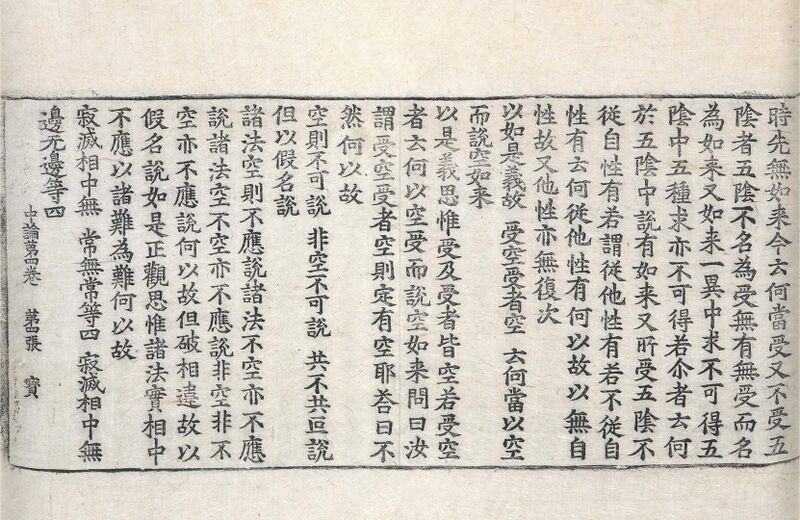 時先無如来今云何當受又不受五
陰者五陰不名為受無有無受而名
為如来又如来一異中求不可得五
陰中五種求亦不可得若尒者云何
於五陰中說有如来又所受五陰不
從自性有若謂從他性有若不從自
性有云何從他性有何以故以無自
性故又他性亦無復次
以如是義故　受空受者空　云何當以空
而說空如来
以是義思惟受及受者皆空若受空
者云何以空受而說空如来問曰汝
謂受空受者空則定有空耶荅曰不
然何以故
空則不可說　非空不可說　共不共叵說
但以假名說
諸法空則不應說諸法不空亦不應
說諸法空不空亦不應說非空非不
空亦不應說何以故但破相違故以
假名說如是正觀思惟諸法實相中
不應以諸難為難何以故
寂滅相中無　常無常等四　寂滅相中無
邊无邊等四
中論第四卷　第四張　寶